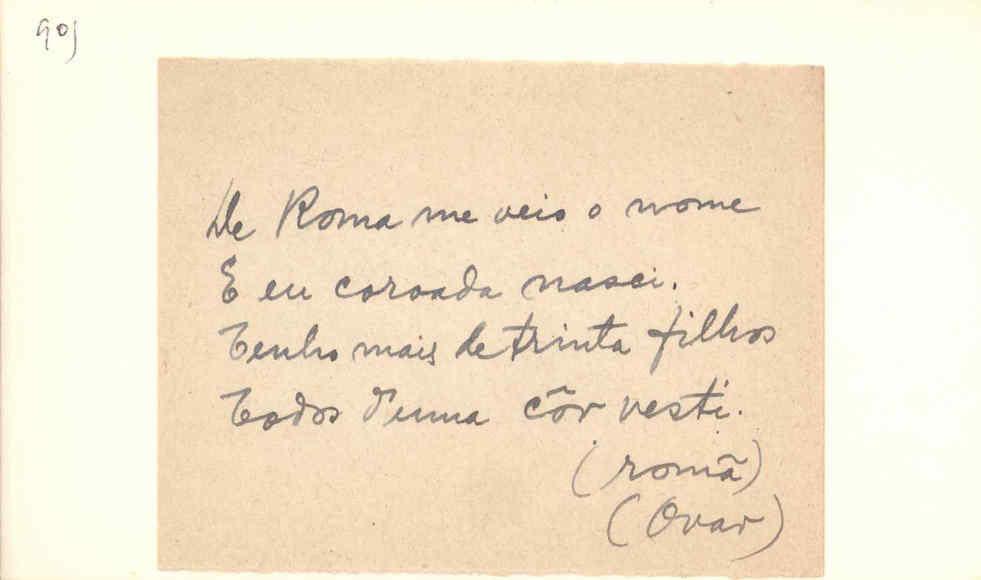 90)
De Roma me veio o nome
E eu coroada nasci.
Tenho mais de trinta filhos
Todos d'uma côr vesti.
(romã)
(Ovar)